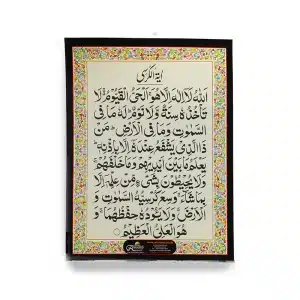 اٰیَةُ الْکُرْسِی
اَللّٰهُ لَاۤ اِلٰهَ اِلَّا هُوَ اَلْحَیُّ الْقَیُّوْمُ لَا
تَاْخُذُهٗ سِنَةٌ وَّلَا نَوْمٌ لَهٗ مَا فِی
السَّمٰوٰتِ وَمَا فِی الْاَرْضِ مَنْ
ذَا الَّذِیْ یَشْفَعُ عِنْدَهٗۤ اِلَّا بِاِذْنِهٖ
یَعْلَمُ مَا بَیْنَ اَیْدِیْهِمْ وَمَا خَلْفَهُمْ
وَلَا یُحِیْطُوْنَ بِشَیْءٍ مِّنْ عِلْمِهٖۤ اِلَّا
بِمَا شَآءَ وَسِعَ کُرْسِیُّهُ السَّمٰوٰتِ وَ
الْاَرْضَ وَلَا یَـُٔوْدُهٗ حِفْظُهُمَا وَ
هُوَ الْعَلِیُّ الْعَظِیْمُ